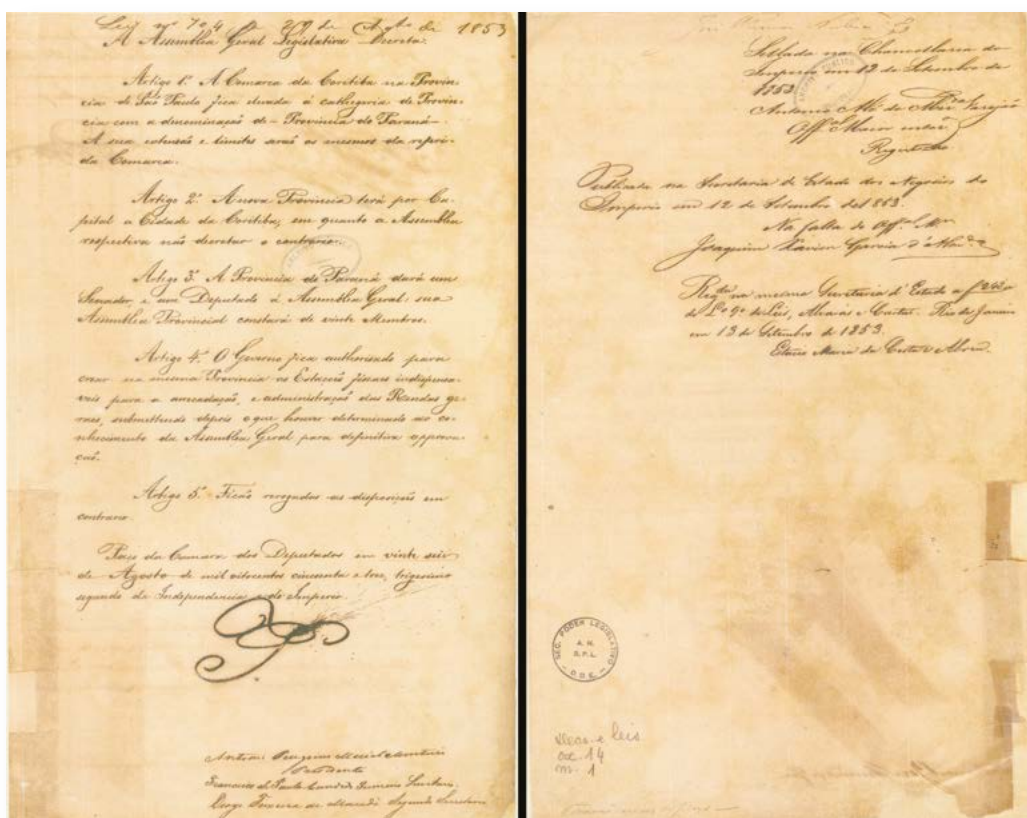 Lei nº 704 de 29 de Agto de 1853
A Assemblea Geral Legislativa Decreta:
Artigo 1º A Comarca da Coritiba na Provin-
cia de São Paulo fica elevada á cathegoria de Provin-
cia com a denominação de – Provincia do Paraná –
A sua extensão e limites serão os mesmos da referi-
da Comarca.
Artigo 2º A nova Provincia terá por Ca-
pital a Cidade da Coritiba, em quanto a Assemblea
respectiva não decretar o contrario.
Artigo 3º A Provincia do Paraná dará um
Senador, e um Deputado á Assemblea Geral: sua
Assemblea Provincial constará de vinte Membros.
Artigo 4º O Governo fica authorisado para
crear na mesma Provincia as Estações fiscaes indispensa-
veis para a arrecadação, e administração das Rendas ge-
raes, submettendo depois o que houver determinado ao co-
nhecimento da Assemblea Geral para definitiva approva-
ção.
Artigo 5º Ficão revogadas as disposições em
contrario.
Paço da Camara dos Deputados em vinte seis
de Agosto de mil oitocentos cincoenta e tres, trigesimo
segundo da Independencia e do Imperio.
Maciel Monteiro
Presidente
Francisco de Paula Candido Primeiro Secretario
Segundo Secretario
Sellada na Chancellaria do
Imperio em 12 de Setembro de
1853.
Antonio
Off.al Maior
Publicada na Secretaria de Estado dos Negocios do
Imperio em 12 de Setembro de 1853.
Na falta do Off.al M.or
Joaquim Xavier Garcia d'Almda
Regda na mesma Secretaria d'Estado a f
do Lº 9º de Leis, Alvaras e Cartas. Rio de Janeiro
em 13 de Setembro de 1853.
Maria da Costa e Abreu.
SEC. PODER LEGISLATIVO
A. N.
S. P. L.
e leis
14
1